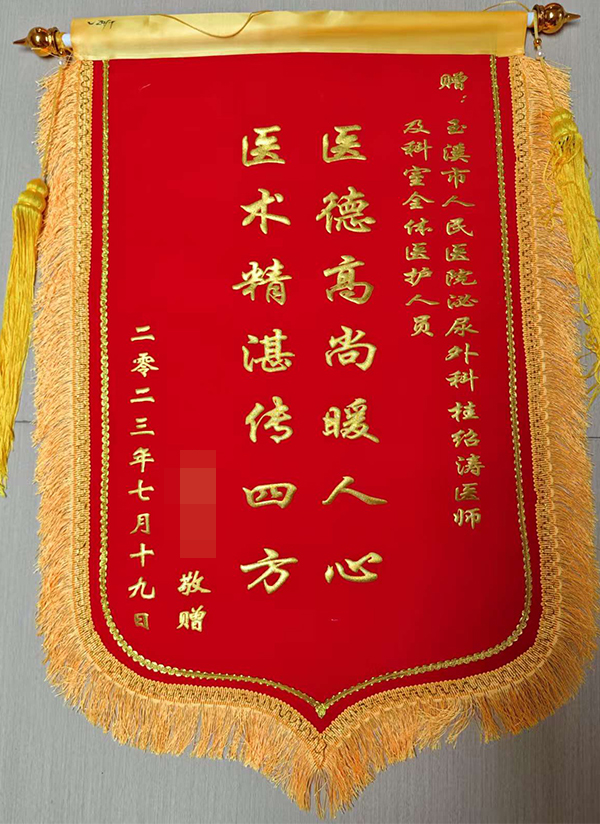 赠：玉溪市人民医院泌尿外科桂绍涛医师
及科室全体医护人员
医德高尚暖人心
医术精湛传四方
敬赠
二零二三年七月十九日